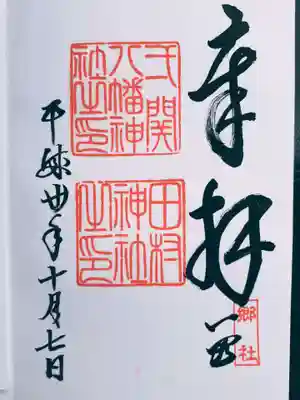 奉拝
郷社
弌関
八幡神
社之印
田村
神社
之印
平成丗年十月七日